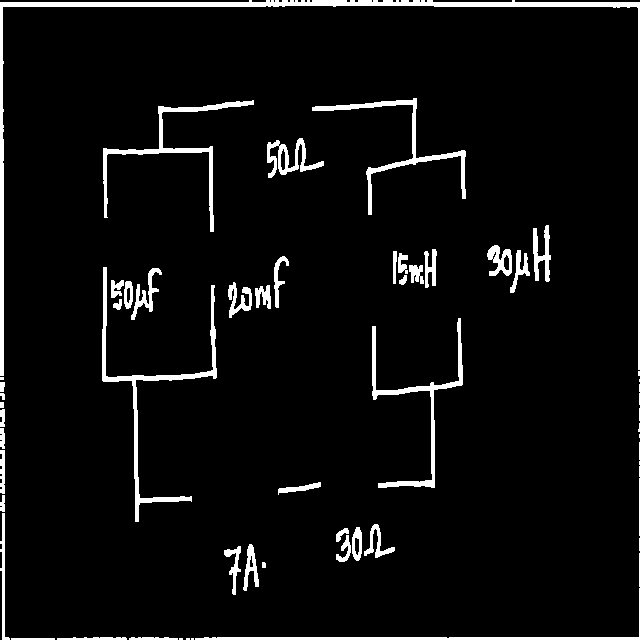 50Ω
50μF
20mF
15mH
30μH
7A.
30Ω